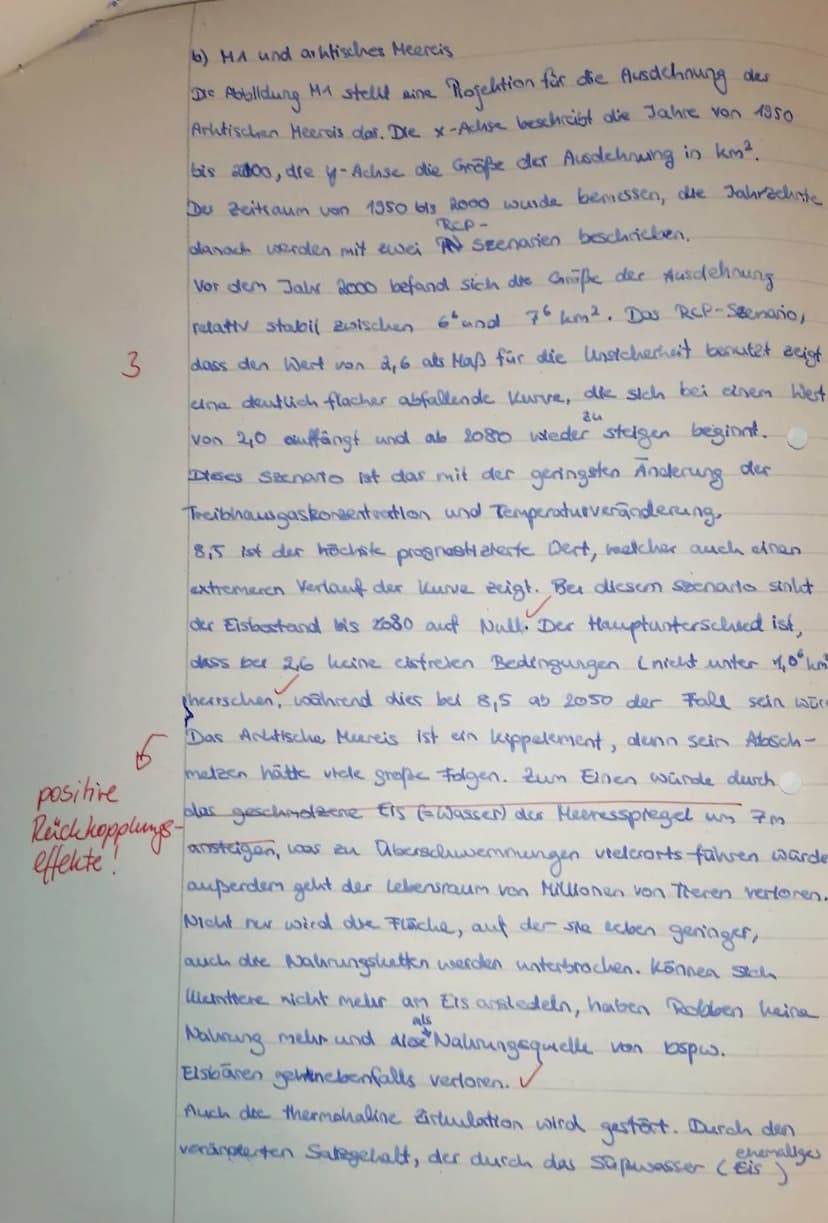 b) M1 und arktisches Meereis
Die Abbildung M1 stellt eine Projektion für die Ausdehnung des
Arktischen Meereis dar. Die x-Achse beschreibt die Jahre von 1950
bis 2100, die y-Achse die Größe der Ausdehnung in km².
Der Zeitraum von 1950 bis 2000 wurde bemessen, die Jahrzehnte
RCP-
danach werden mit zwei Szenarien beschrieben.
Vor dem Jahr 2000 befand sich die Größe der Ausdehnung
relativ stabil zwischen 6⁶ und 7⁶ km². Das RCP-Szenario,
3
dass den Wert von 2,6 als Maß für die Unsicherheit benutzt zeigt
eine deutlich flacher abfallende Kurve, die sich bei einem Wert
zu
von 2,0 auffängt und ab 2080 wieder steigen beginnt.
Dieses Szenario ist das mit der geringsten Änderung der
Treibhausgaskonzentration und Temperaturveränderung.
8,5 ist der höchste prognostizierte Wert, welcher auch einen
extremeren Verlauf der Kurve zeigt. Bei diesem Szenario sinkt
der Eisbestand bis 2080 auf Null. Der Hauptunterschied ist,
dass bei 2,6 keine eisfreien Bedingungen (nicht unter 1,0⁶ km²
herrschen, während dies bei 8,5 ab 2050 der Fall sein wür
Das Arktische Meereis ist ein Kippelement, denn sein Absch-
melzen hätte viele große Folgen. Zum Einen würde durch
positive
Rückkopplungs-
effekte!
das geschmolzene Eis (=Wasser) der Meeresspiegel um 7m
ansteigen, was zu Überschwemmungen vielerorts führen würde
außerdem geht der Lebensraum von Millionen von Tieren verloren.
Nicht nur wird die Fläche, auf der sie leben geringer,
auch die Nahrungsketten werden unterbrochen. Können sich
Kleintiere nicht mehr an Eis ansiedeln, haben Robben keine
als
Nahrung mehr und diese Nahrungsquelle von bspw.
Eisbären gehen ebenfalls verloren.
Auch die thermohaline Zirkulation wird gestört. Durch den
ehemaliges
veränderten Salzgehalt, der durch das Süßwasser (Eis)